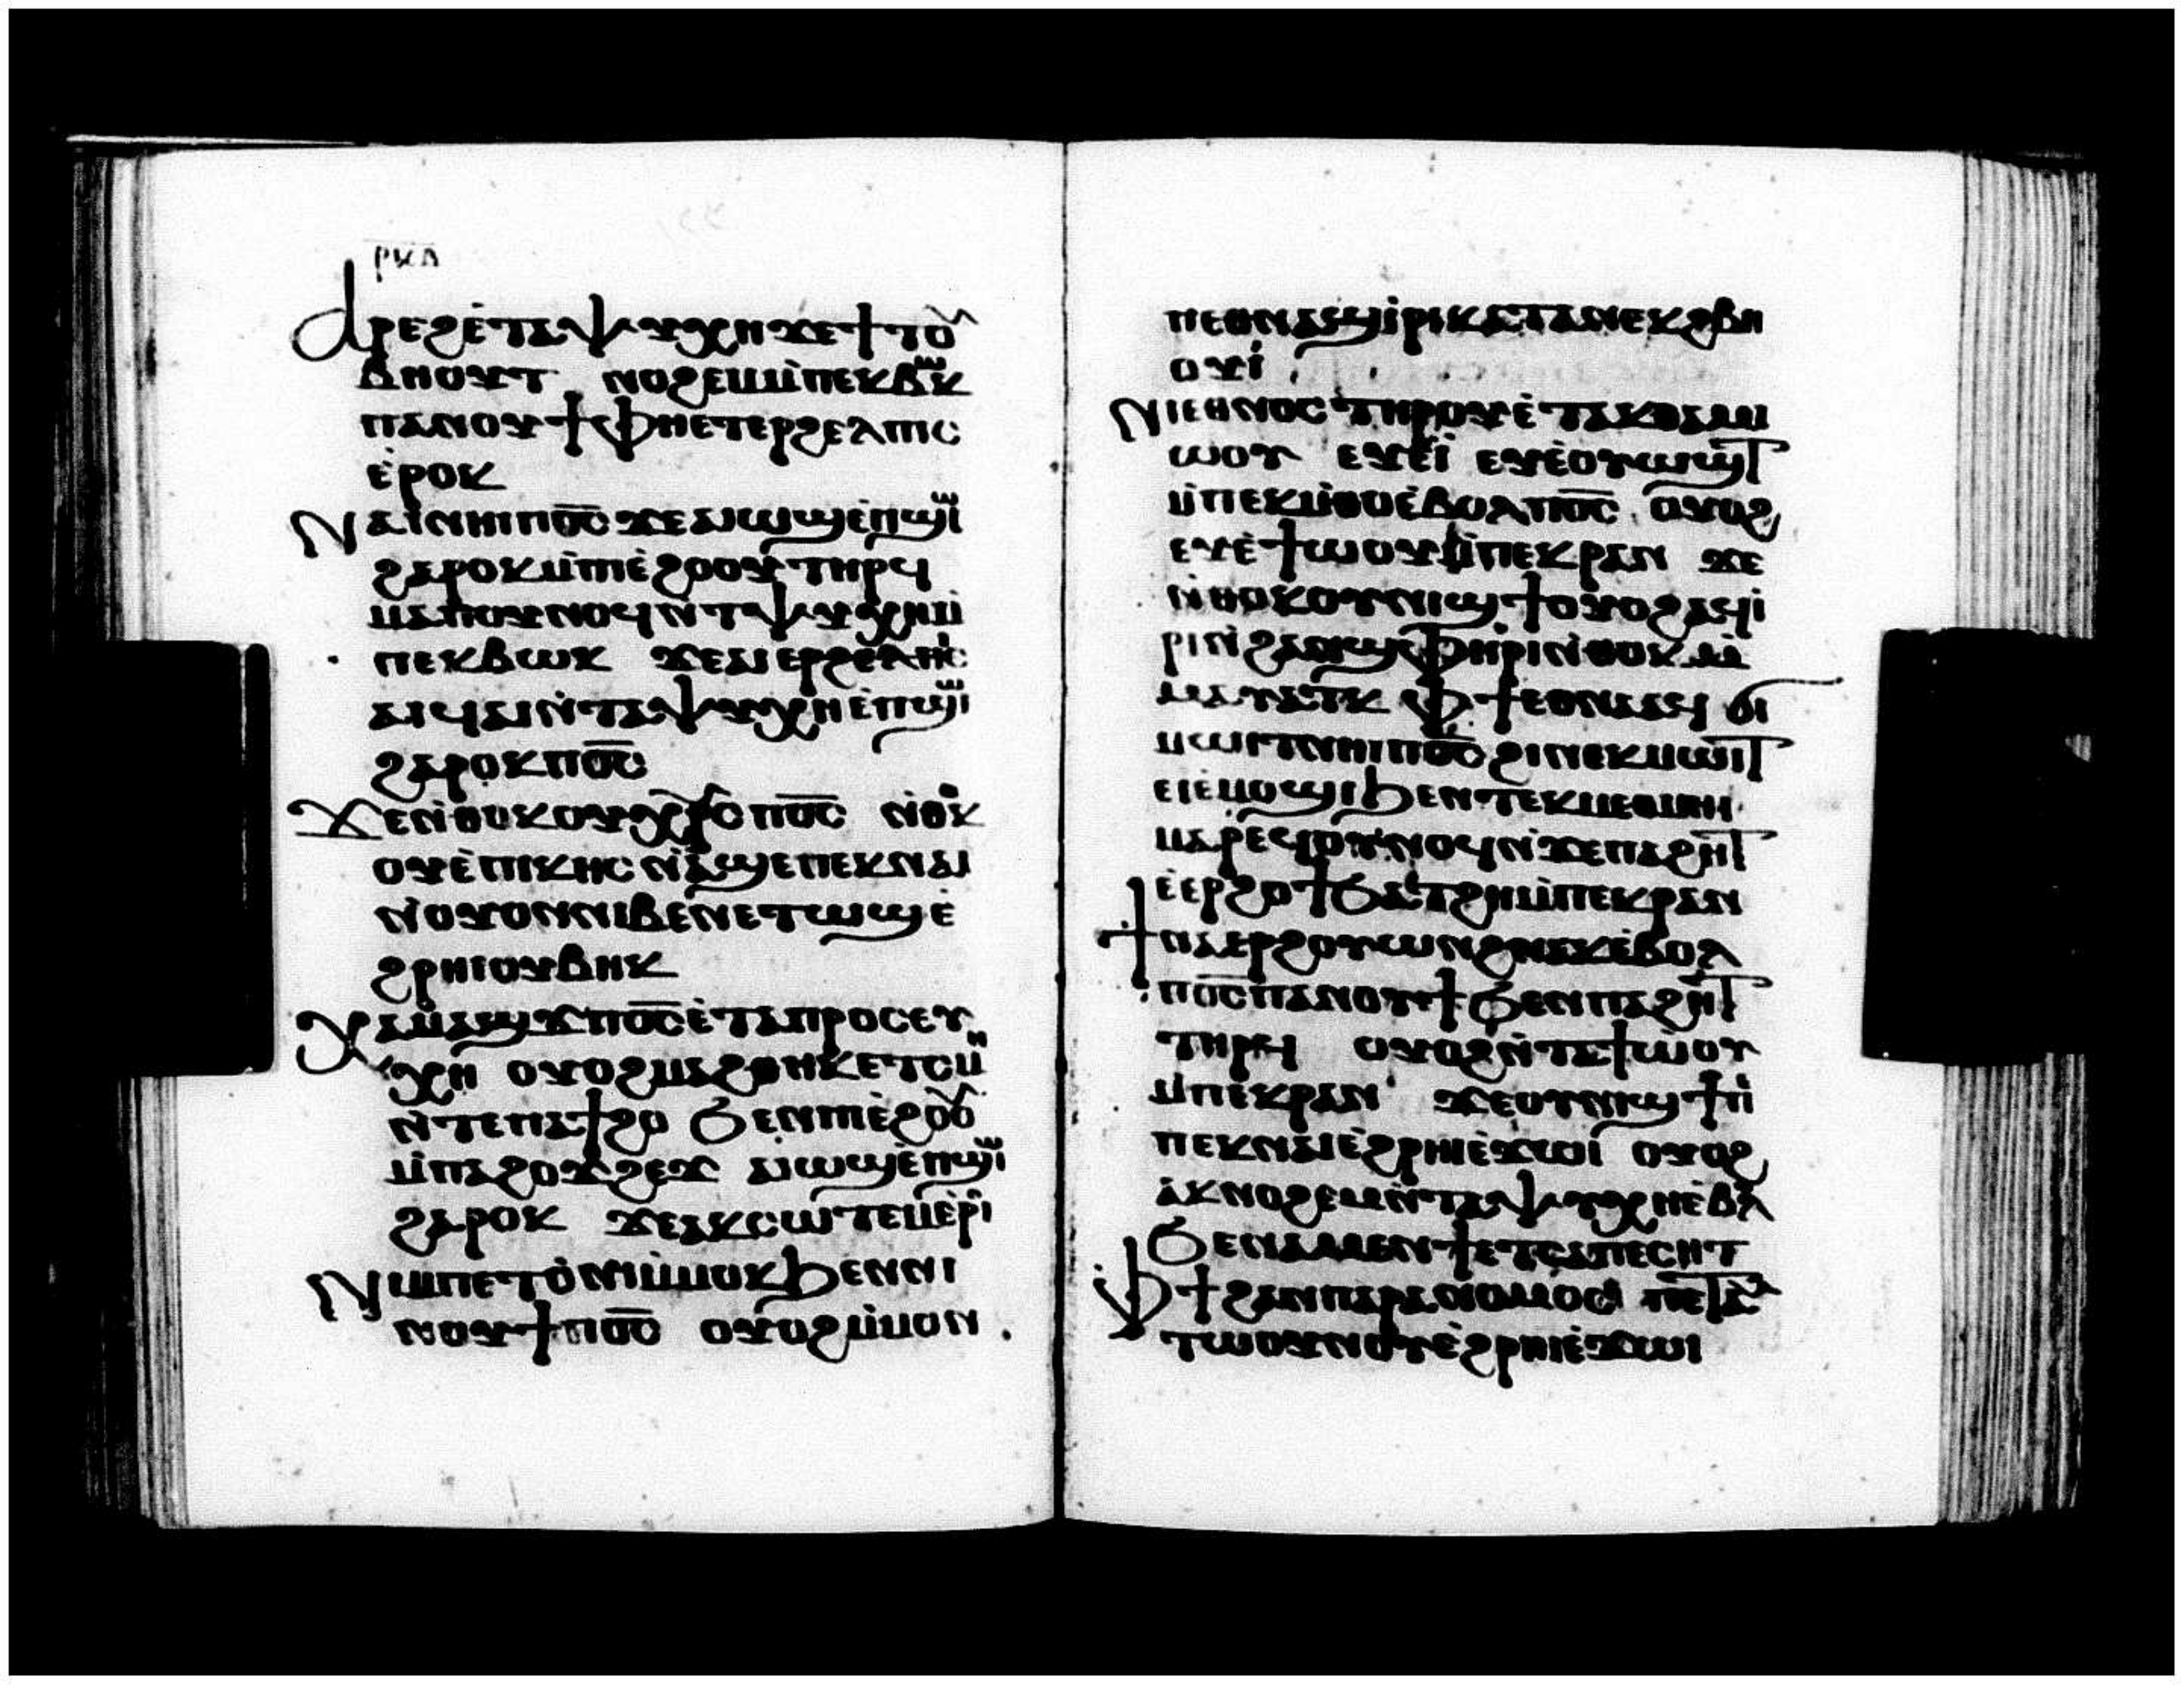 ⲣⲕⲇ
Ⲁⲣⲉϩⲉ̀ⲧⲁⲯⲩⲭⲏϫⲉϯⲧⲟⲩ
ⲃⲏⲟⲩⲧ ⲛⲟϩⲉⲙⲙ̀ⲡⲉⲕⲃⲱⲕ
ⲡⲁⲛⲟⲩϯⲫⲏⲉⲧⲉⲣϩⲉⲗⲡⲓⲥ
ⲉ̀ⲣⲟⲕ
Ⲛⲁⲓⲛⲏⲓⲡⲟ̅ⲥ̅ϫⲉⲁⲓⲱϣⲉ̀ⲡϣⲱⲓ
ϩⲁⲣⲟⲕⲙ̀ⲡⲓⲉ̀ϩⲟⲟⲩⲧⲏⲣϥ
ⲙⲁⲡⲟⲩⲛⲟϥⲛ̀ⲧⲁⲯⲩⲭⲏⲙ̀
ⲡⲉⲕⲃⲱⲕ ϫⲉⲁⲓⲉⲣϩⲉⲗⲡⲓⲥ
ⲁⲓϥⲁⲓⲛ̀ⲧⲁⲯⲩⲭⲏⲉ̀ⲡϣⲱⲓ
ϩⲁⲣⲟⲕⲡⲟ̅ⲥ̅
Ϫⲉⲛ̀ⲑⲟⲕⲟⲩⲭ̅ⲣ̅ⲥ̅ⲡⲟ̅ⲥ̅ ⲛ̀ⲑⲟⲕ
ⲟⲩⲉ̀ⲡⲓⲕⲏⲥⲛⲁ̀ϣⲉⲡⲉⲕⲛⲁⲓ
ⲛ̀ⲟⲩⲟⲛⲛⲓⲃⲉⲛⲉⲧⲱϣⲉ̀
ϩⲣⲏⲓⲟⲩⲃⲏⲕ
Ϭⲁⲙⲁϣϫⲡⲟ̅ⲥ̅ⲉ̀ⲧⲁⲡⲣⲟⲥⲉⲩ
ⲭⲏ ⲟⲩⲟϩⲙⲁϩⲑⲏⲕⲉⲧⲥⲙⲏ
ⲛ̀ⲧⲉⲡⲁϯϩⲟ ϧⲉⲛⲡⲓⲉ̀ϩⲟⲟⲩ
ⲙ̀ⲡⲁϩⲟϫϩⲉϫ ⲁⲓⲱϣⲉ̀ⲡϣⲱⲓ
ϩⲁⲣⲟⲕ ϫⲉⲁⲕⲥⲱⲧⲉⲙⲉ̀ⲣⲟⲓ
Ⲛⲓⲙⲡⲉⲧⲟ̀ⲛⲓⲙ̀ⲙⲟⲕϧⲉⲛⲛⲓ
ⲛⲟⲩϯⲡⲟ̅ⲥ̅ ⲟⲩⲟϩⲙ̀ⲙⲟⲛ
ⲡⲉⲑⲛⲁϣⲓ̀ⲣⲓⲕⲁⲧⲁⲛⲉⲕϩⲃⲏ
ⲟⲩⲓ̀
Ⲛⲓⲉⲑⲛⲟⲥⲧⲏⲣⲟⲩⲉ̀ⲧⲁⲕⲑⲁⲙⲓ
ⲱⲟⲩ ⲉⲩⲉ̀ⲓ̀ ⲉⲩⲉ̀ⲟⲩⲱϣⲧ
ⲙ̀ⲡⲉⲕⲙ̀ⲑⲟⲉ̀ⲃⲟⲗⲡⲟ̅ⲥ̅ ⲟⲩⲟϩ
ⲉⲩⲉ̀ϯⲱⲟⲩⲙ̀ⲡⲉⲕⲣⲁⲛ ϫⲉ
ⲛ̀ⲑⲟⲕⲟⲩⲛⲓϣϯⲟⲩⲟϩⲁϥⲓ̀
ⲣⲓⲛ̀ϩⲁⲛϣⲫⲏⲣⲓⲛ̀ⲑⲟⲕⲙ̀
ⲙⲁⲩⲁⲧⲕ ⲫϯⲉⲑⲛⲁⲁϥ ϭⲓ
ⲙⲱⲓⲧⲛⲏⲓⲡⲟ̅ⲥ̅ϩⲓⲛⲉⲕⲙⲱⲓⲧ
ⲉⲓⲉ̀ⲙⲟϣⲓϧⲉⲛⲧⲉⲕⲙⲉⲑⲙⲏⲓ
ⲙⲁⲣⲉϥⲟⲩⲛⲟϥⲛ̀ϫⲉⲡⲁϩⲏⲧ
ⲉ̀ⲉⲣϩⲟϯϧⲁⲧϩⲏⲙ̀ⲡⲉⲕⲣⲁⲛ
Ϯⲛⲁⲉⲣϩⲟⲩⲱⲛϩⲛⲁⲕⲉ̀ⲃⲟⲗ
ⲡⲟ̅ⲥ̅ⲡⲁⲛⲟⲩϯϧⲉⲛⲡⲁϩⲏⲧ
ⲧⲏⲣϥ ⲟⲩⲟϩⲛ̀ⲧⲁϯⲱ̀ⲟⲩ
ⲙ̀ⲡⲉⲕⲣⲁⲛ ϫⲉⲟⲩⲛⲓϣϯⲡⲉ̀
ⲡⲉⲕⲛⲁⲓⲉ̀ϩⲣⲏⲓⲉ̀ϫⲱⲓ ⲟⲩⲟϩ
ⲁ̀ⲕⲛⲟϩⲉⲙⲛ̀ⲧⲁⲯⲩⲭⲏⲉ̀ⲃⲗ
ϧⲉⲛⲁⲙⲉⲛϯⲉⲧⲥⲁⲡⲉⲥⲏⲧ
Ⲫϯϩⲁⲛⲡⲁⲣⲁⲛⲟⲙⲟⲥ ⲡⲉⲧⲁⲩ
ⲧⲱⲟⲩⲛⲟⲩⲉ̀ϩⲣⲏⲓⲉ̀ϫⲱⲓ